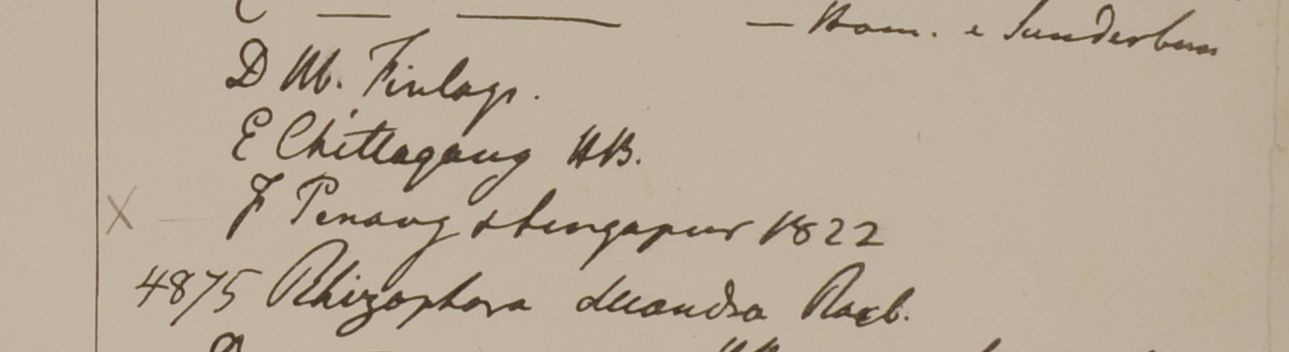 C — — — Ham. e Sunderbun
D Hb. Finlays.
E Chittagong HB.
X — F Penang & Singapur 1822
4875 Rhizophora decandra Roxb.